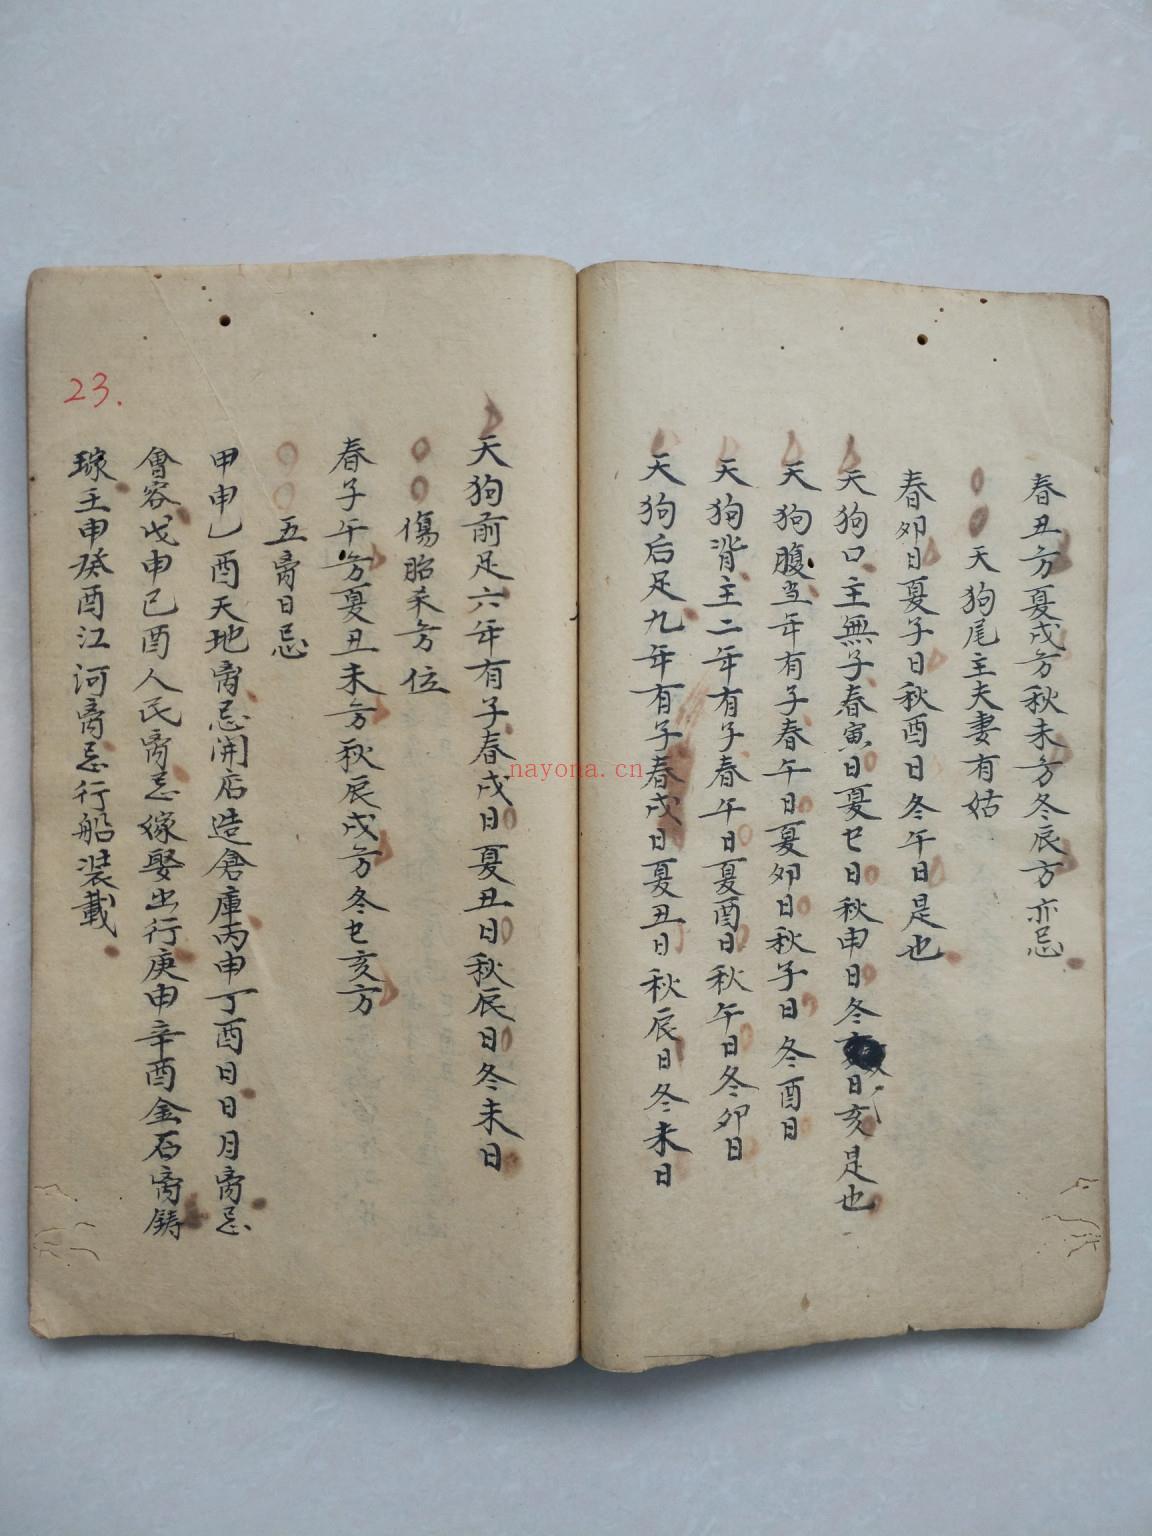 春丑方夏戌方秋未方冬辰方亦忌
天狗尾主夫妻有姑
春卯日夏子日秋酉日冬午日是也
天狗口主無子春寅日夏巳日秋申日冬日亥是也
天狗腹当年有子春午日夏卯日秋子日冬酉日
天狗背主二年有子春午日夏酉日秋午日冬卯日
天狗后足九年有子春戌日夏丑日秋辰日冬未日
天狗前足六年有子春戌日夏丑日秋辰日冬未日
傷胎杀方位
春子午方夏丑未方秋辰戌方冬巳亥方
五离日忌
甲申乙酉天地离忌開店造倉庫丙申丁酉日日月离忌
會容戊申己酉人民离忌嫁娶出行庚申辛酉金石离鑄
琭壬申癸酉江河离忌行船装載
23.
nayona.cn